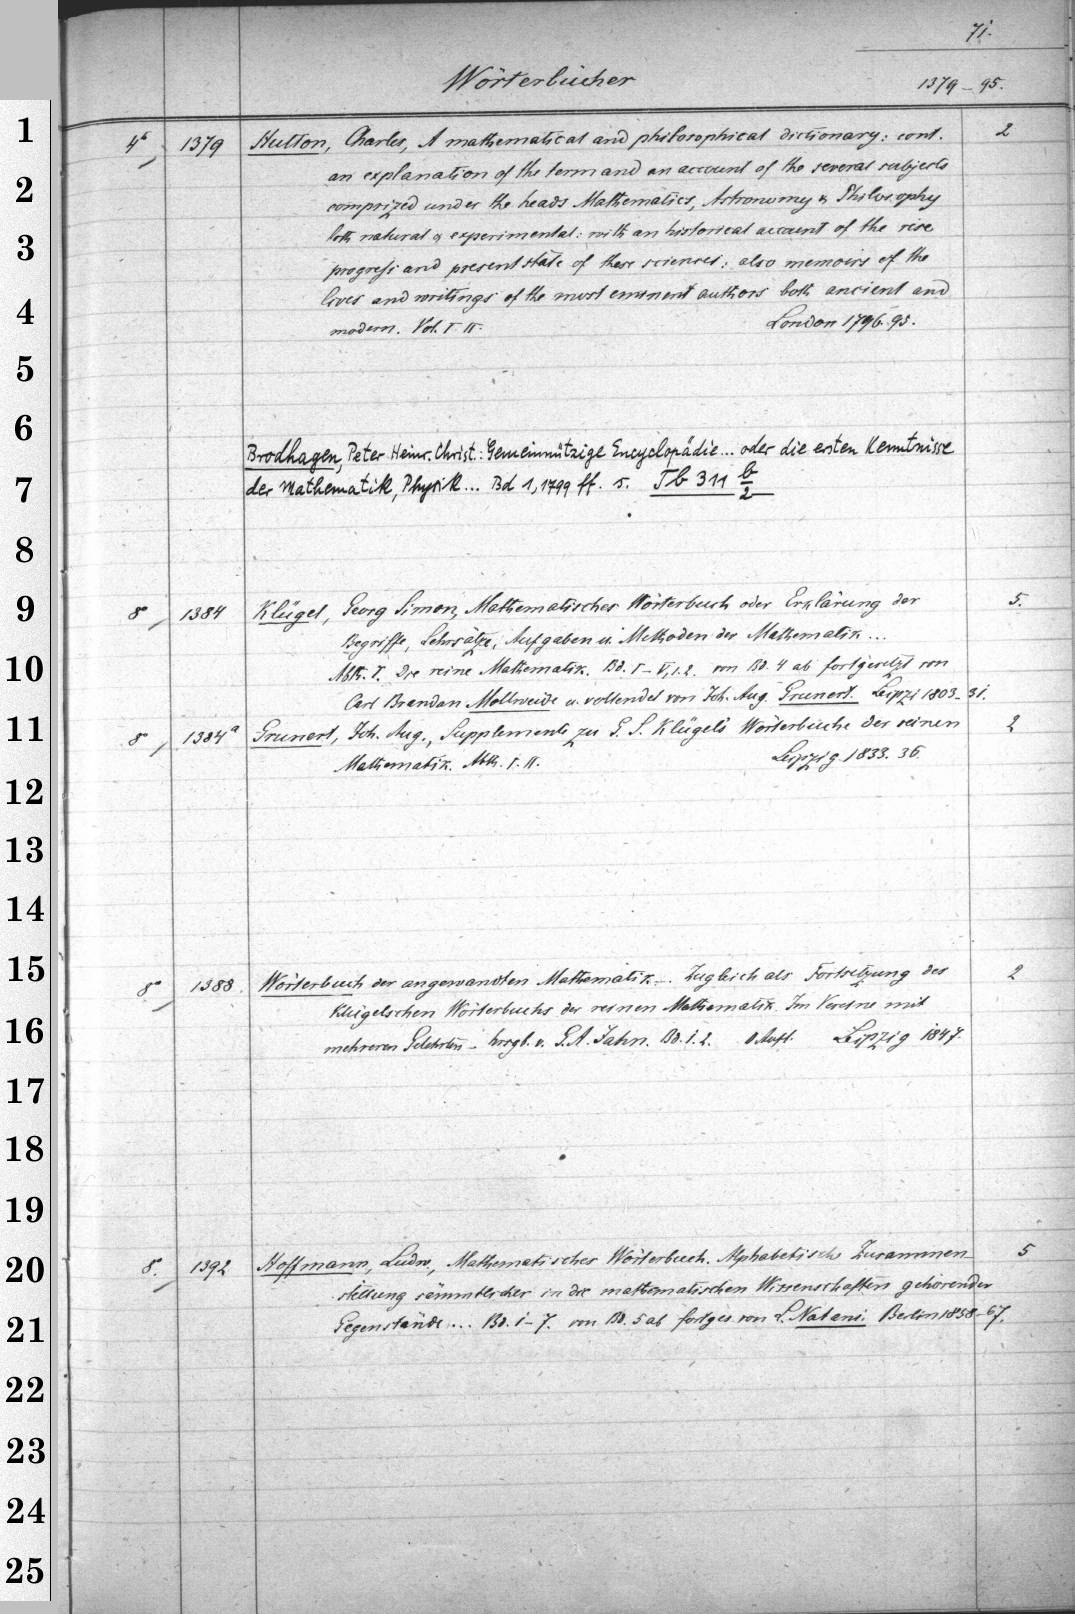 71.
Wörterbücher 1379-95.
1
4° 1379 Hutton, Charles, A mathematical and philosophical dictionary: cont. 2
an explanation of the term and an account of the several subjects
2
comprized under the heads Mathematics, Astronomy & Philosophy
both natural & experimental: with an historical account of the rise
3
progress and present state of these sciences: also memoirs of the
lives and writings of the most eminent authors both ancient and
4
modern. Vol. I. II. London 1796.95.
5
6
Brodhagen, Peter Heinr. Christ.: Gemeinnützige Encyclopädie... oder die ersten Kenntnisse
7
der Mathematik, Physik... Bd 1, 1799 ff. s. Tb 311 b/2
8
9
8° 1384 Klügel, Georg Simon, Mathematisches Wörterbuch oder Erklärung der 5.
Begriffe, Lehrsätze, Aufgaben u. Methoden der Mathematik...
10
Abth. I. Die reine Mathematik. Bd. I-V,1.2. von Bd. 4 ab fortgesetzt von
Carl Brandan Mollweide u. vollendet von Joh. Aug. Grunert. Leipzi 1803-31.
11
8° 1384a Grunert, Joh. Aug., Supplemente zu G. S. Klügel's Wörterbuche der reinen 2
Mathematik. Abth. I. II. Leipzig 1833. 36.
12
13
14
15
8° 1388 Wörterbuch der angewandten Mathematik... Zugleich als Fortsetzung des 2
Klügelschen Wörterbuchs der reinen Mathematik. Im Vereine mit
16
mehreren Gelehrten - hrsgb. v. G. A. Jahn. Bd. 1.2. Aufl. Leipzig 1847.
17
18
19
20
8. 1392 Hoffmann, Ludw., Mathematisches Wörterbuch. Alphabetische Zusammen 5
stellung sämmtlicher in die mathematischen Wissenschaften gehörender
21
Gegenstände... Bd. 1-7. von Bd. 5 ab fortges. von L. Natani. Berlin 1858-67.
22
23
24
25